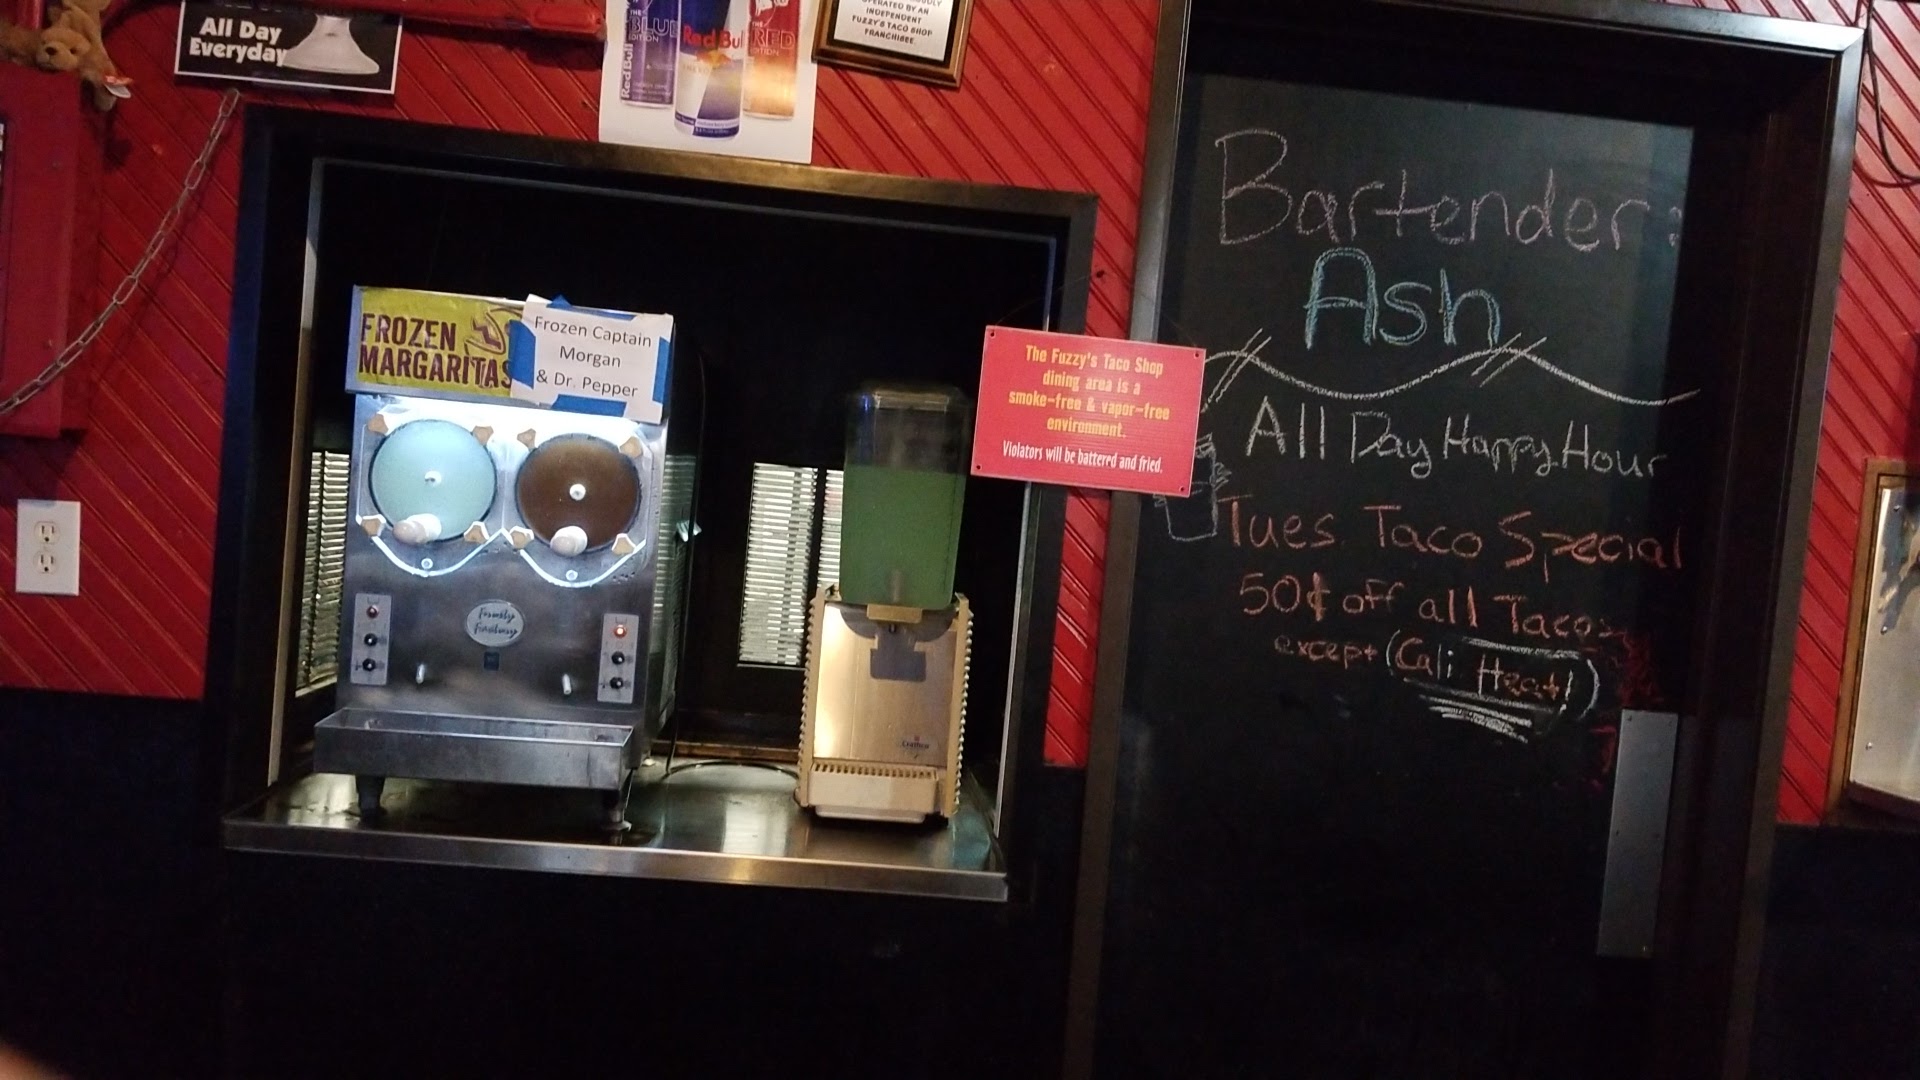 All Day
Everyday
RedBull
THE
BLUE
EDITION
Red Bull
THE
RED
EDITION
OPERATED BY AN
INDEPENDENT
FUZZY'S TACO SHOP
FRANCHISEE.
FROZEN
MARGARITAS
Frozen Captain
Morgan
& Dr. Pepper
The Fuzzy's Taco Shop
dining area is a
smoke-free & vapor-free
environment.
Violators will be battered and fried.
Bartender:
Ash
All Day Happy Hour
Tues. Taco Special
50¢ off all Tacos
except (Cali Heat!)